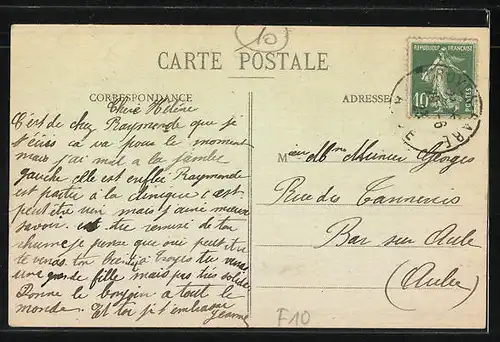 10
CARTE POSTALE
CORRESPONDANCE
ADRESSE
REPUBLIQUE FRANÇAISE
10
POSTES
Chère Hélène
C'est de chez Raymonde que je
t'écris ca va pour le moment
mais j'ai mal a la jambe
gauche elle est enflée Raymonde
est partie à la clinique c'est
peut être rien mais j'aime mieux
savoir. es tu remise de ton
rhume je pense que oui peut être
tu viens
une grande fille mais pas très solide
Donne le bonjour a tout le
monde. Et toi je t'embrasse
Jeanne
M Munier Georges
Rue des Tanneries
Bar sur Aube
(Aube)
F10